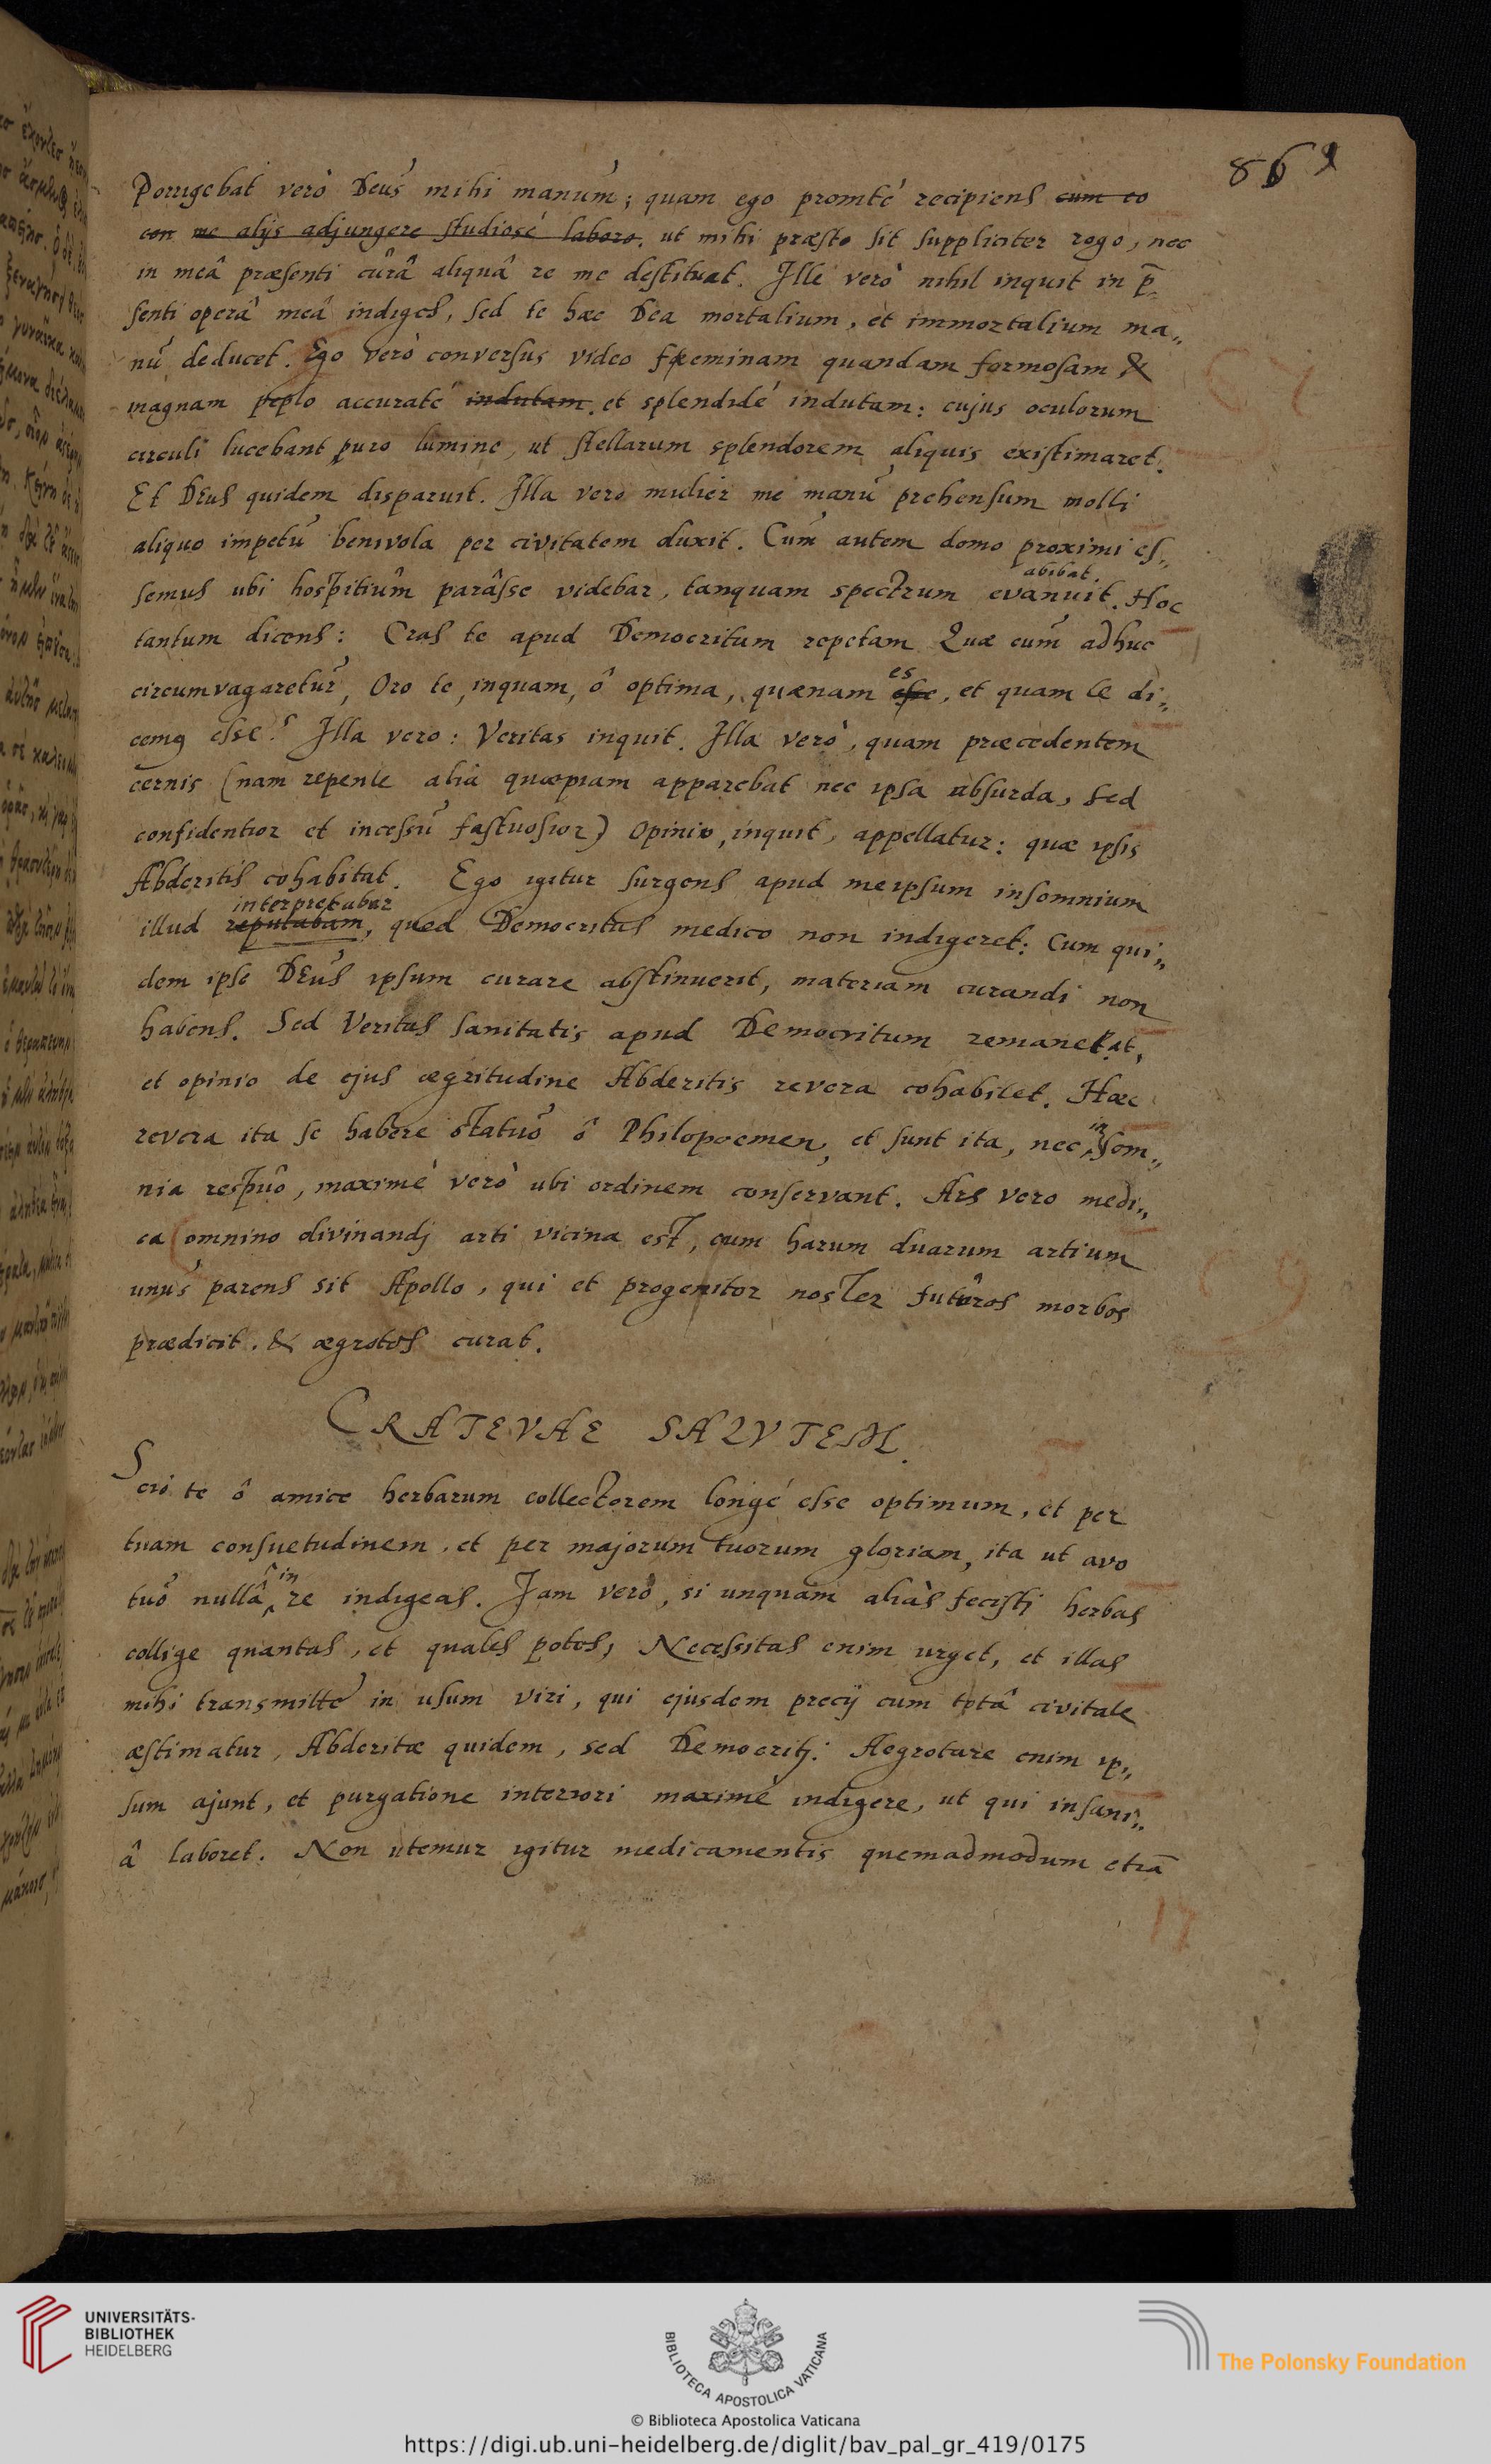 869
Porrigebat verò Deus mihi manum; quam ego promtè recipiens cum eo
con me alijs adjungere studiosé laboro. ut mihi præsto sit suppliciter rogo, nec
in meâ præsenti curâ aliquâ re me destituat. Ille verò nihil inquit in p̄
senti operâ meâ indiges, sed te hæc Dea mortalium, et immortalium ma„
nu deducet. Ego verò conversus video fœminam quandam formosam &
magnam peplo accuraté indutam. et splendidé indutam: cujus oculorum
circuli lucebant puro lumine, ut stellarum splendorem aliquis existimaret.
Et Deus quidem disparuit. Illa vero mulier me manu prehensum molli
aliquo impetu benivola per civitatem duxit. Cum autem domo proximi es„
abibat.
semus ubi hospitium parâsse videbar, tanquam spectrum evanuit. Hoc
tantum dicens: Cras te apud Democritum repetam Quæ cum adhuc
es
circumvagaretur, Oro te, inquam, ô optima, quænam esse, et quam te di„
cemq esse? Illa vero: Veritas inquit. Illa verò, quam præcedentem
cernis (nam repente alia quæpiam apparebat nec ipsa absurda, sed
confidentior et incessu fastuosior) Opinio, inquit, appellatur: quæ ipsis
Abderitis cohabitat. Ego igitur surgens apud meipsum insomnium
interpretabar
illud reputabam, quod Democritus medico non indigeret: Cum qui„
dem ipse Deus ipsum curare abstinuerit, materiam curandi non
habens. Sed Veritas sanitatis apud Democritum remanerat,
et opinio de ejus ægritudine Abderitis revera cohabitet. Hæc
in
revera ita se habere statuo ô Philopoemen, et sunt ita, nec som„
nia respuo, maximè verò ubi ordinem conservant. Ars vero medi„
ca omnino divinandj arti vicina est, cum harum duarum artium
unus parens sit Apollo, qui et progenitor noster futuros morbos
prædicit. & ægrotos curat.
CRATEVAE SALVTEM.
Scio te ô amice herbarum collectorem longé esse optimum, et per
tuam consuetudinem, et per majorum tuorum gloriam, ita ut avo
in
tuo nullâ re indigeas. Jam verò, si unquam aliàs fecisti herbas
collige quantas, et quales potes; Necessitas enim urget, et illas
mihi transmitte in usum viri, qui ejusdem precij cum totâ civitate
æstimatur, Abderitæ quidem, sed Democritj: Aegrotare enim ip„
sum ajunt, et purgatione interiori maximè indigere, ut qui insani„
â laboret. Non utemur igitur medicamentis quemadmodum etiā
17
UNIVERSITÄTS-
BIBLIOTHEK
HEIDELBERG
BIBLIOTECA APOSTOLICA VATICANA
© Biblioteca Apostolica Vaticana
The Polonsky Foundation
https://digi.ub.uni-heidelberg.de/diglit/bav_pal_gr_419/0175